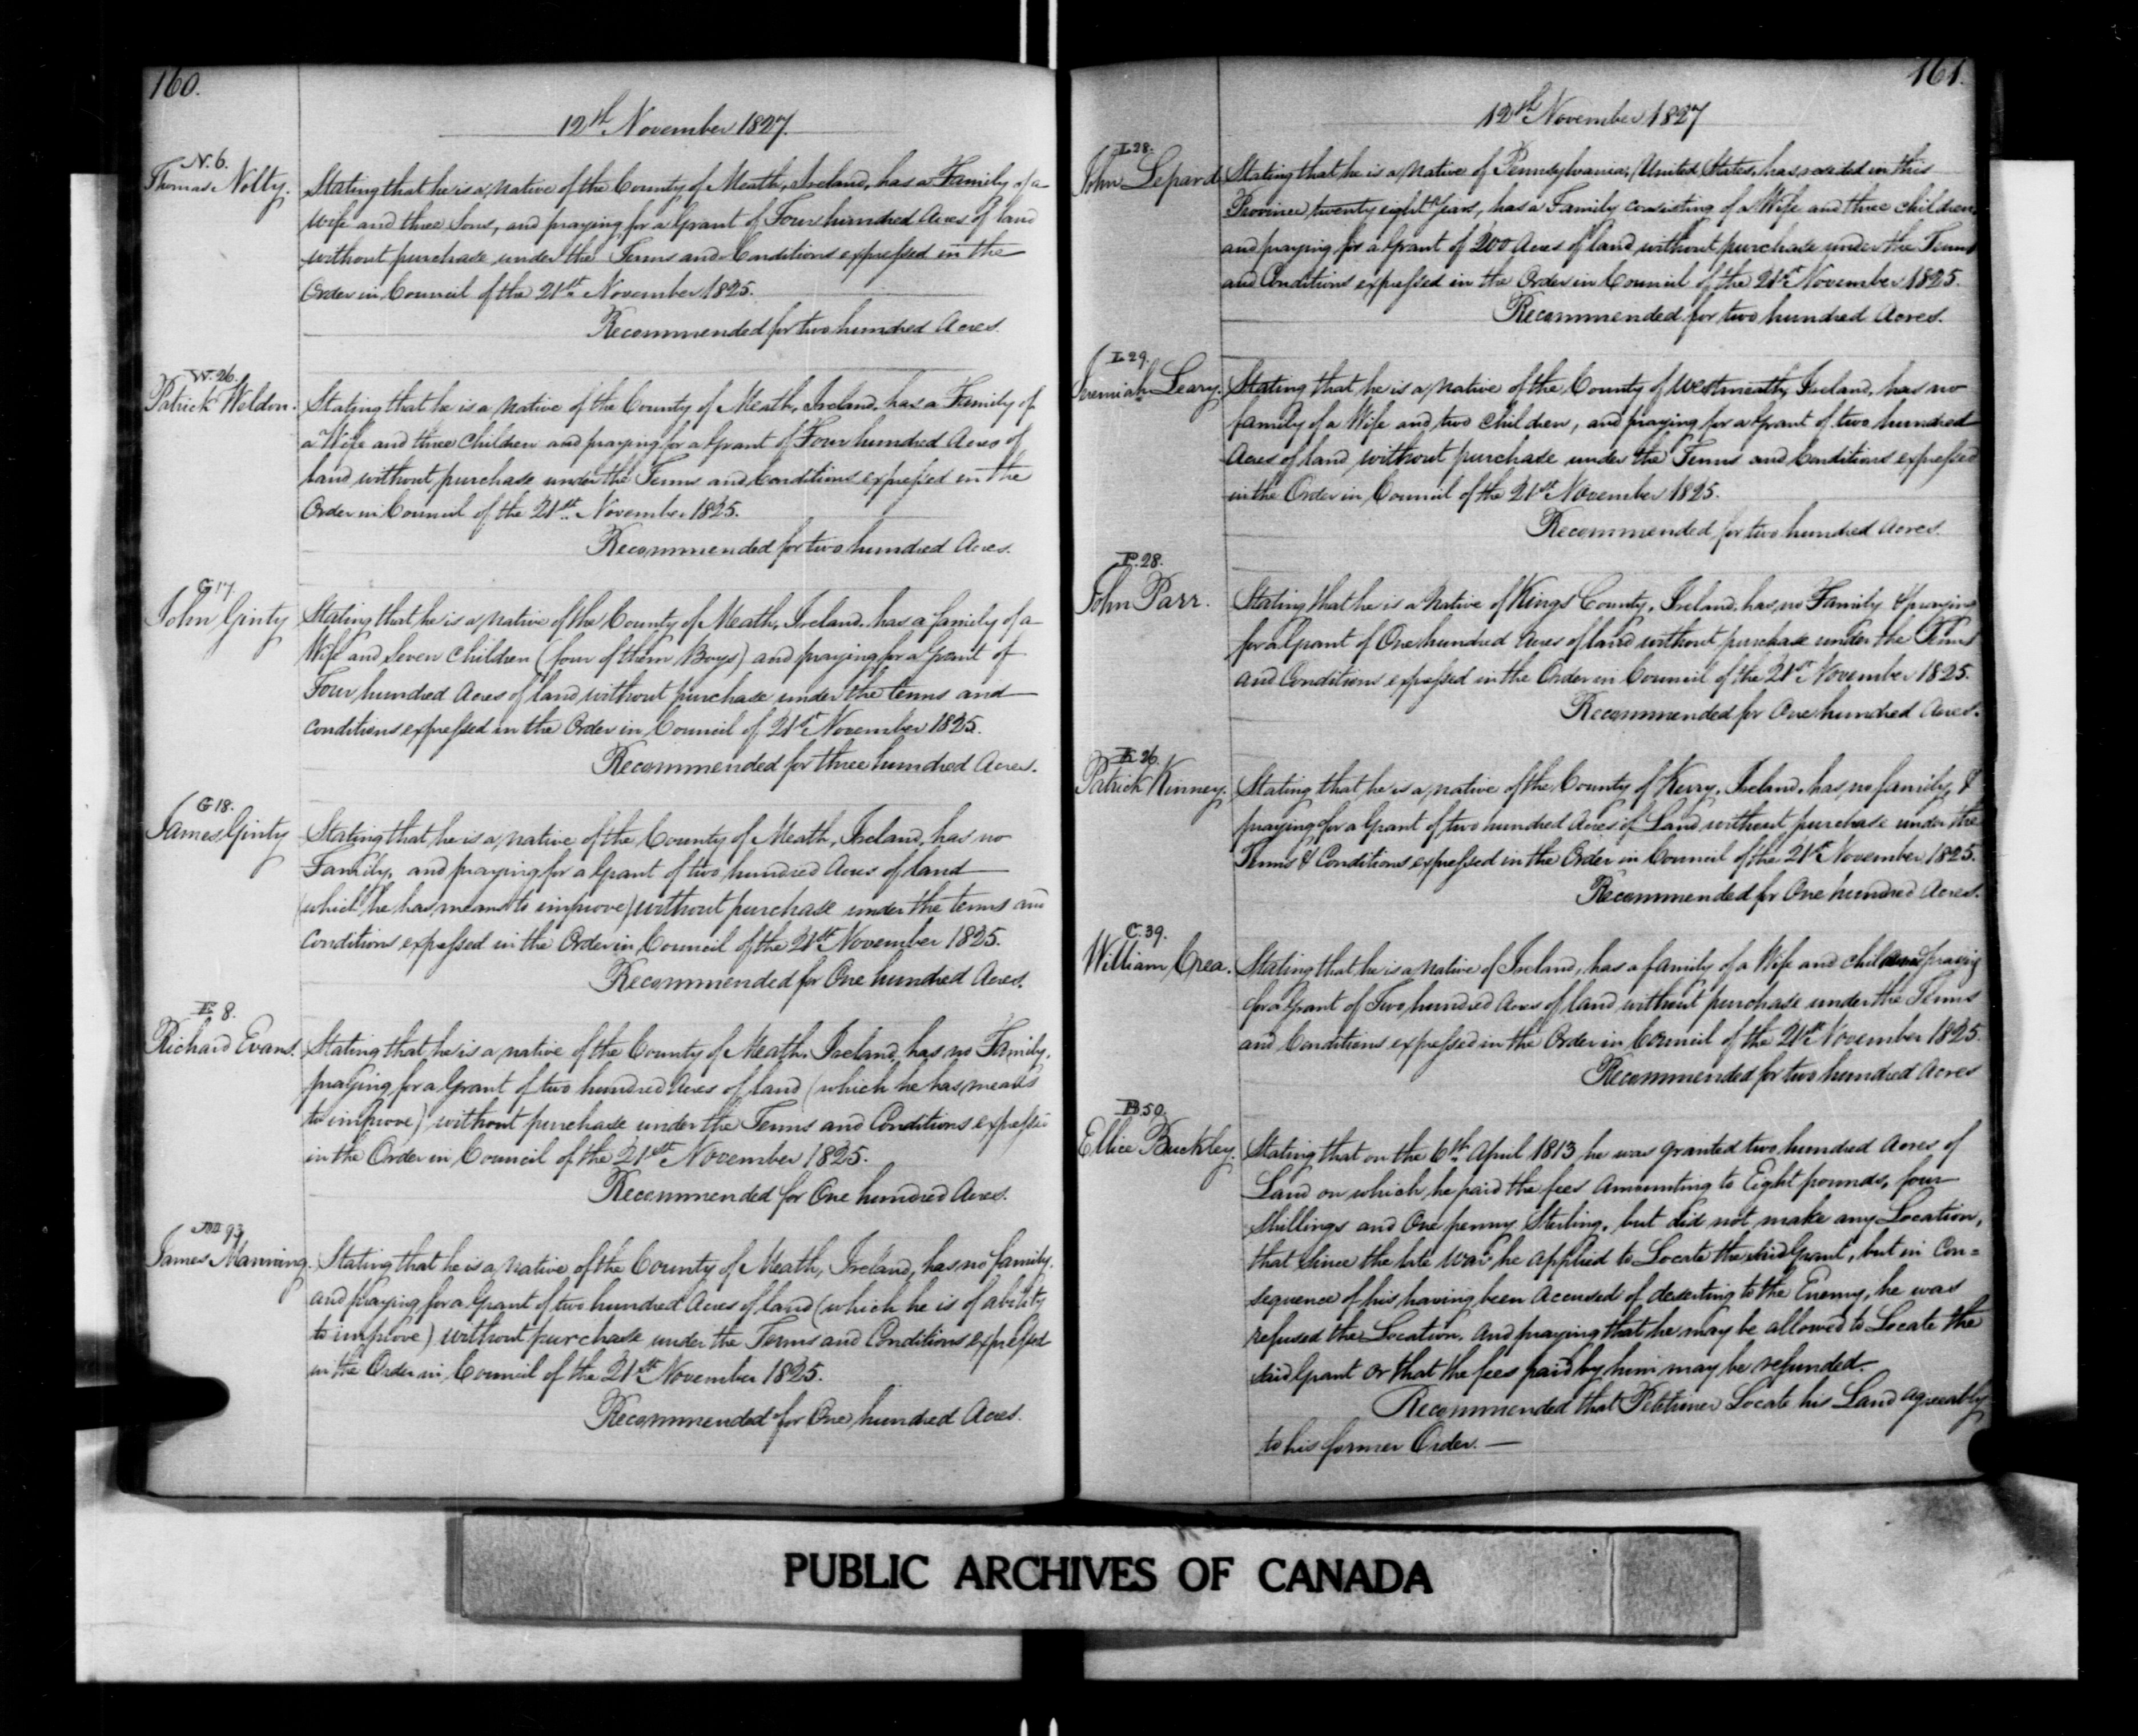 160.
12th November 1827.
N. 6.
Thomas Nolty.
Stating that he is a native of the County of Meath, Ireland, has a Family of a
Wife and three Sons, and praying for a Grant of Four hundred Acres of land
without purchase under the Terms and Conditions expressed in the
Order in Council of the 21st November 1825.
Recommended for two hundred Acres.
W. 26.
Patrick Weldon.
Stating that he is a native of the County of Meath, Ireland, has a Family of
a Wife and three Children and praying for a Grant of Four hundred Acres of
land without purchase under the Terms and Conditions expressed in the
Order in Council of the 21st November 1825.
Recommended for two hundred Acres.
G 17.
John Ginty
Stating that he is a native of the County of Meath, Ireland. has a family of a
Wife and Seven Children (four of them Boys) and praying for a Grant of
Four hundred Acres of land without purchase under the terms and
conditions expressed in the Order in Council of 21st November 1825.
Recommended for three hundred Acres.
G 18.
James Ginty
Stating that he is a native of the County of Meath, Ireland, has no
Family, and praying for a Grant of two hundred Acres of land
(which he has means to improve) without purchase under the terms and
Conditions expressed in the Order in Council of the 21st November 1825.
Recommended for One hundred Acres.
E 8.
Richard Evans.
Stating that he is a native of the County of Meath, Ireland, has no Family,
praying for a Grant of two hundred Acres of land (which he has means
to improve) without purchase under the Terms and Conditions expressed
in the Order in Council of the 21st November 1825.
Recommended for One hundred Acres.
M 93.
James Manning.
Stating that he is a native of the County of Meath, Ireland, has no family,
and praying for a Grant of two hundred Acres of land (which he is of ability
to improve) without purchase under the Terms and Conditions expressed
in the Order in Council of the 21st November 1825.
Recommended for One hundred Acres.
161.
12th November 1827
L 28.
John Lepard
Stating that he is a native of Pennsylvania, United States, has resided in this
Province twenty eight Years, has a Family consisting of a Wife and three children,
and praying for a Grant of 200 Acres of land without purchase under the Terms
and Conditions expressed in the Order in Council of the 21st November 1825.
Recommended for two hundred Acres.
L 29.
Jeremiah Leary.
Stating that he is a native of the County of Westmeath, Ireland, has no
family of a Wife and two Children, and praying for a Grant of two hundred
Acres of land without purchase under the Terms and Conditions expressed
in the Order in Council of the 21st November 1825.
Recommended for two hundred Acres.
P. 28.
John Parr.
Stating that he is a Native of Kings County, Ireland, has no Family & praying
for a Grant of One hundred Acres of land without purchase under the Terms
and Conditions expressed in the Order in Council of the 21st November 1825.
Recommended for One hundred Acres.
K 26.
Patrick Kinney.
Stating that he is a native of the County of Kerry, Ireland, has no family, &
praying for a Grant of two hundred Acres of Land without purchase under the
Terms & Conditions expressed in the Order in Council of the 21st November 1825.
Recommended for One hundred Acres.
C. 39.
William Crea.
Stating that he is a native of Ireland, has a family of a Wife and child and praying
for a Grant of Two hundred Acres of land without purchase under the Terms
and Conditions expressed in the Order in Council of the 21st November 1825.
Recommended for two hundred Acres
B. 50.
Ellice Buckley.
Stating that on the 6th April 1813 he was granted two hundred Acres of
Land on which he paid the fees Amounting to Eight pounds, four
shillings and One penny Sterling, but did not make any Location,
that since the late War he applied to Locate the said Grant, but in Con=
sequence of his having been Accused of deserting to the Enemy, he was
refused the Location. And praying that he may be allowed to Locate the
said Grant or that the fees paid by him may be refunded.
Recommended that Petitioner Locate his Land agreeably
to his former Order. —
PUBLIC ARCHIVES OF CANADA